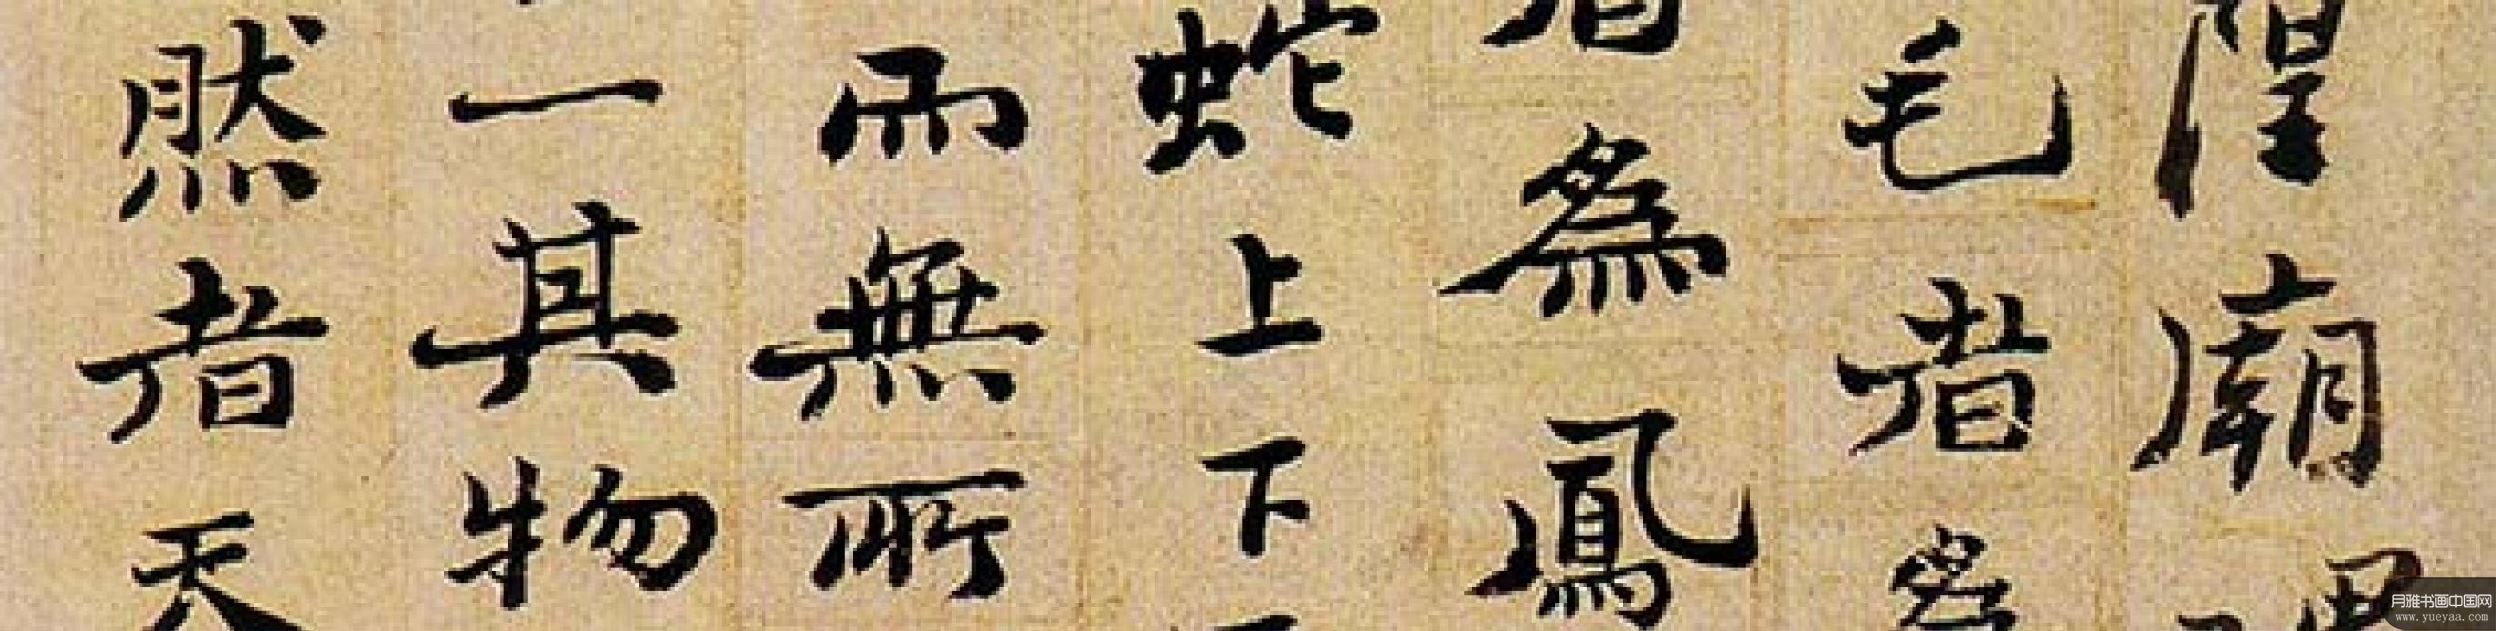 隍廟
毛者為
者為鳳
蛇上下
而無所
一其物
然者天
月雅书画中国网
www.yueyaa.com